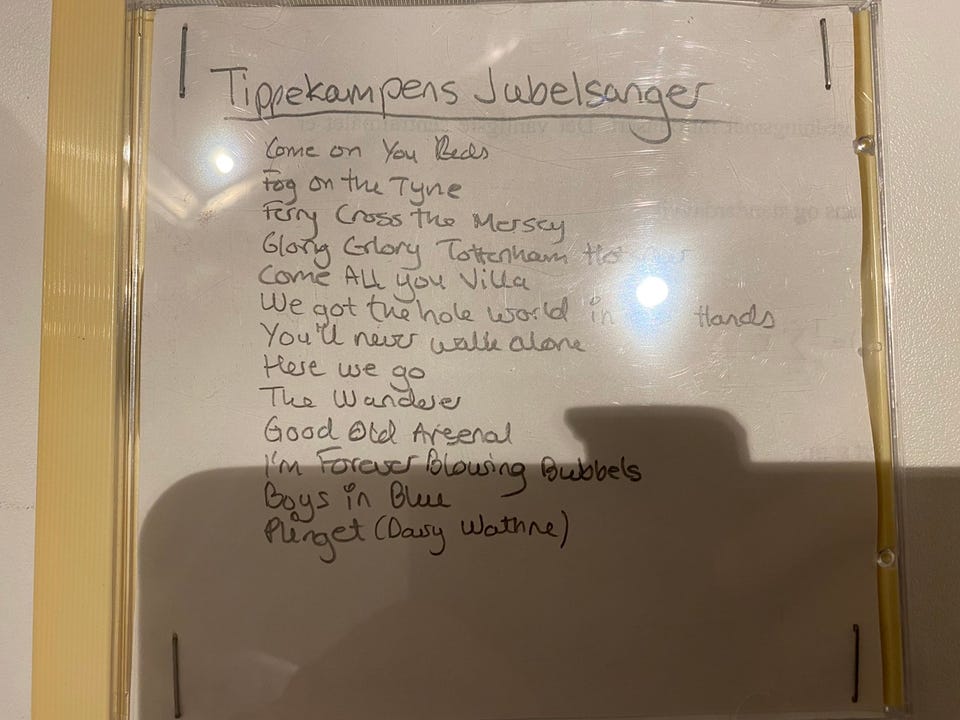 Tippekampens Jubelsanger
Come on You Reds
Fog on the Tyne
Ferry Cross the Mersey
Glory Glory Tottenham Hot
Come All you Villa
We got the hole world in Hands
You'll never walk alone
Here we go
The Wanderer
Good Old Arsenal
I'm Forever Blowing Bubbels
Boys in Blue
Plinget (Davy Wathne)